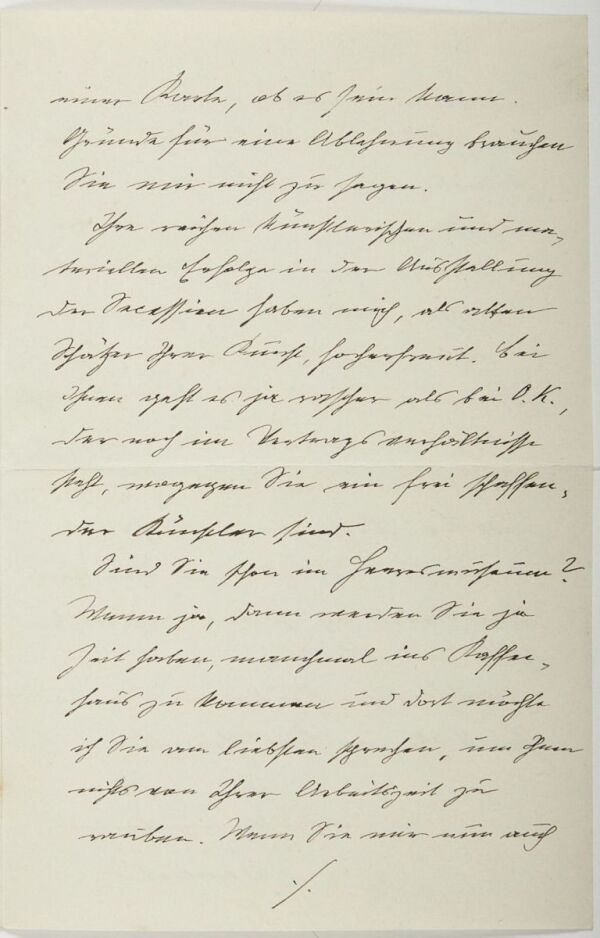 einer Karte, ob es sein kann.
Gründe für eine Ablehnung brauchen
Sie mir nicht zu sagen.
Ihre reichen künstlerischen und ma-
teriellen Erfolge in der Ausstellung
der Secession haben mich, als alten
Schätzer Ihrer Kunst, hocherfreut. Bei
Ihnen geht es ja rascher als bei O. K.,
der noch im Vertragsverhältnisse
steht, wogegen Sie ein frei schaffen-
der Künstler sind.
Sind Sie schon im Heeresmuseum?
Wenn ja, dann werden Sie ja
Zeit haben, manchmal ins Kaffee-
haus zu kommen und dort möchte
ich Sie am liebsten sprechen, um Ihnen
nichts von Ihrer Arbeitszeit zu
rauben. Wenn Sie mir nun auch
./.